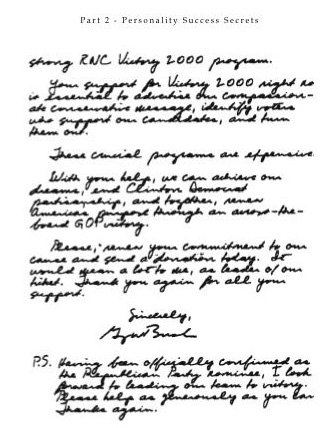 Part 2 - Personality Success Secrets
strong RNC Victory 2000 program.
Your support for Victory 2000 right no
is essential to advertise our compassion-
ate conservative message, identify voters
who support our candidates, and turn
them out.
These crucial programs are expensive.
With your help, we can achieve our
dreams, end Clinton Democrat
partisanship, and together, renew
America's purpose through an across-the-
board GOP victory.
Please, renew your commitment to our
cause and send a donation today. It
would mean a lot to me, as leader of our
ticket. Thank you again for all your
support.
Sincerely,
George Bush
P.S. Having been officially confirmed as
the Republican Party nominee, I look
forward to leading our team to victory.
Please help as generously as you can
Thanks again.